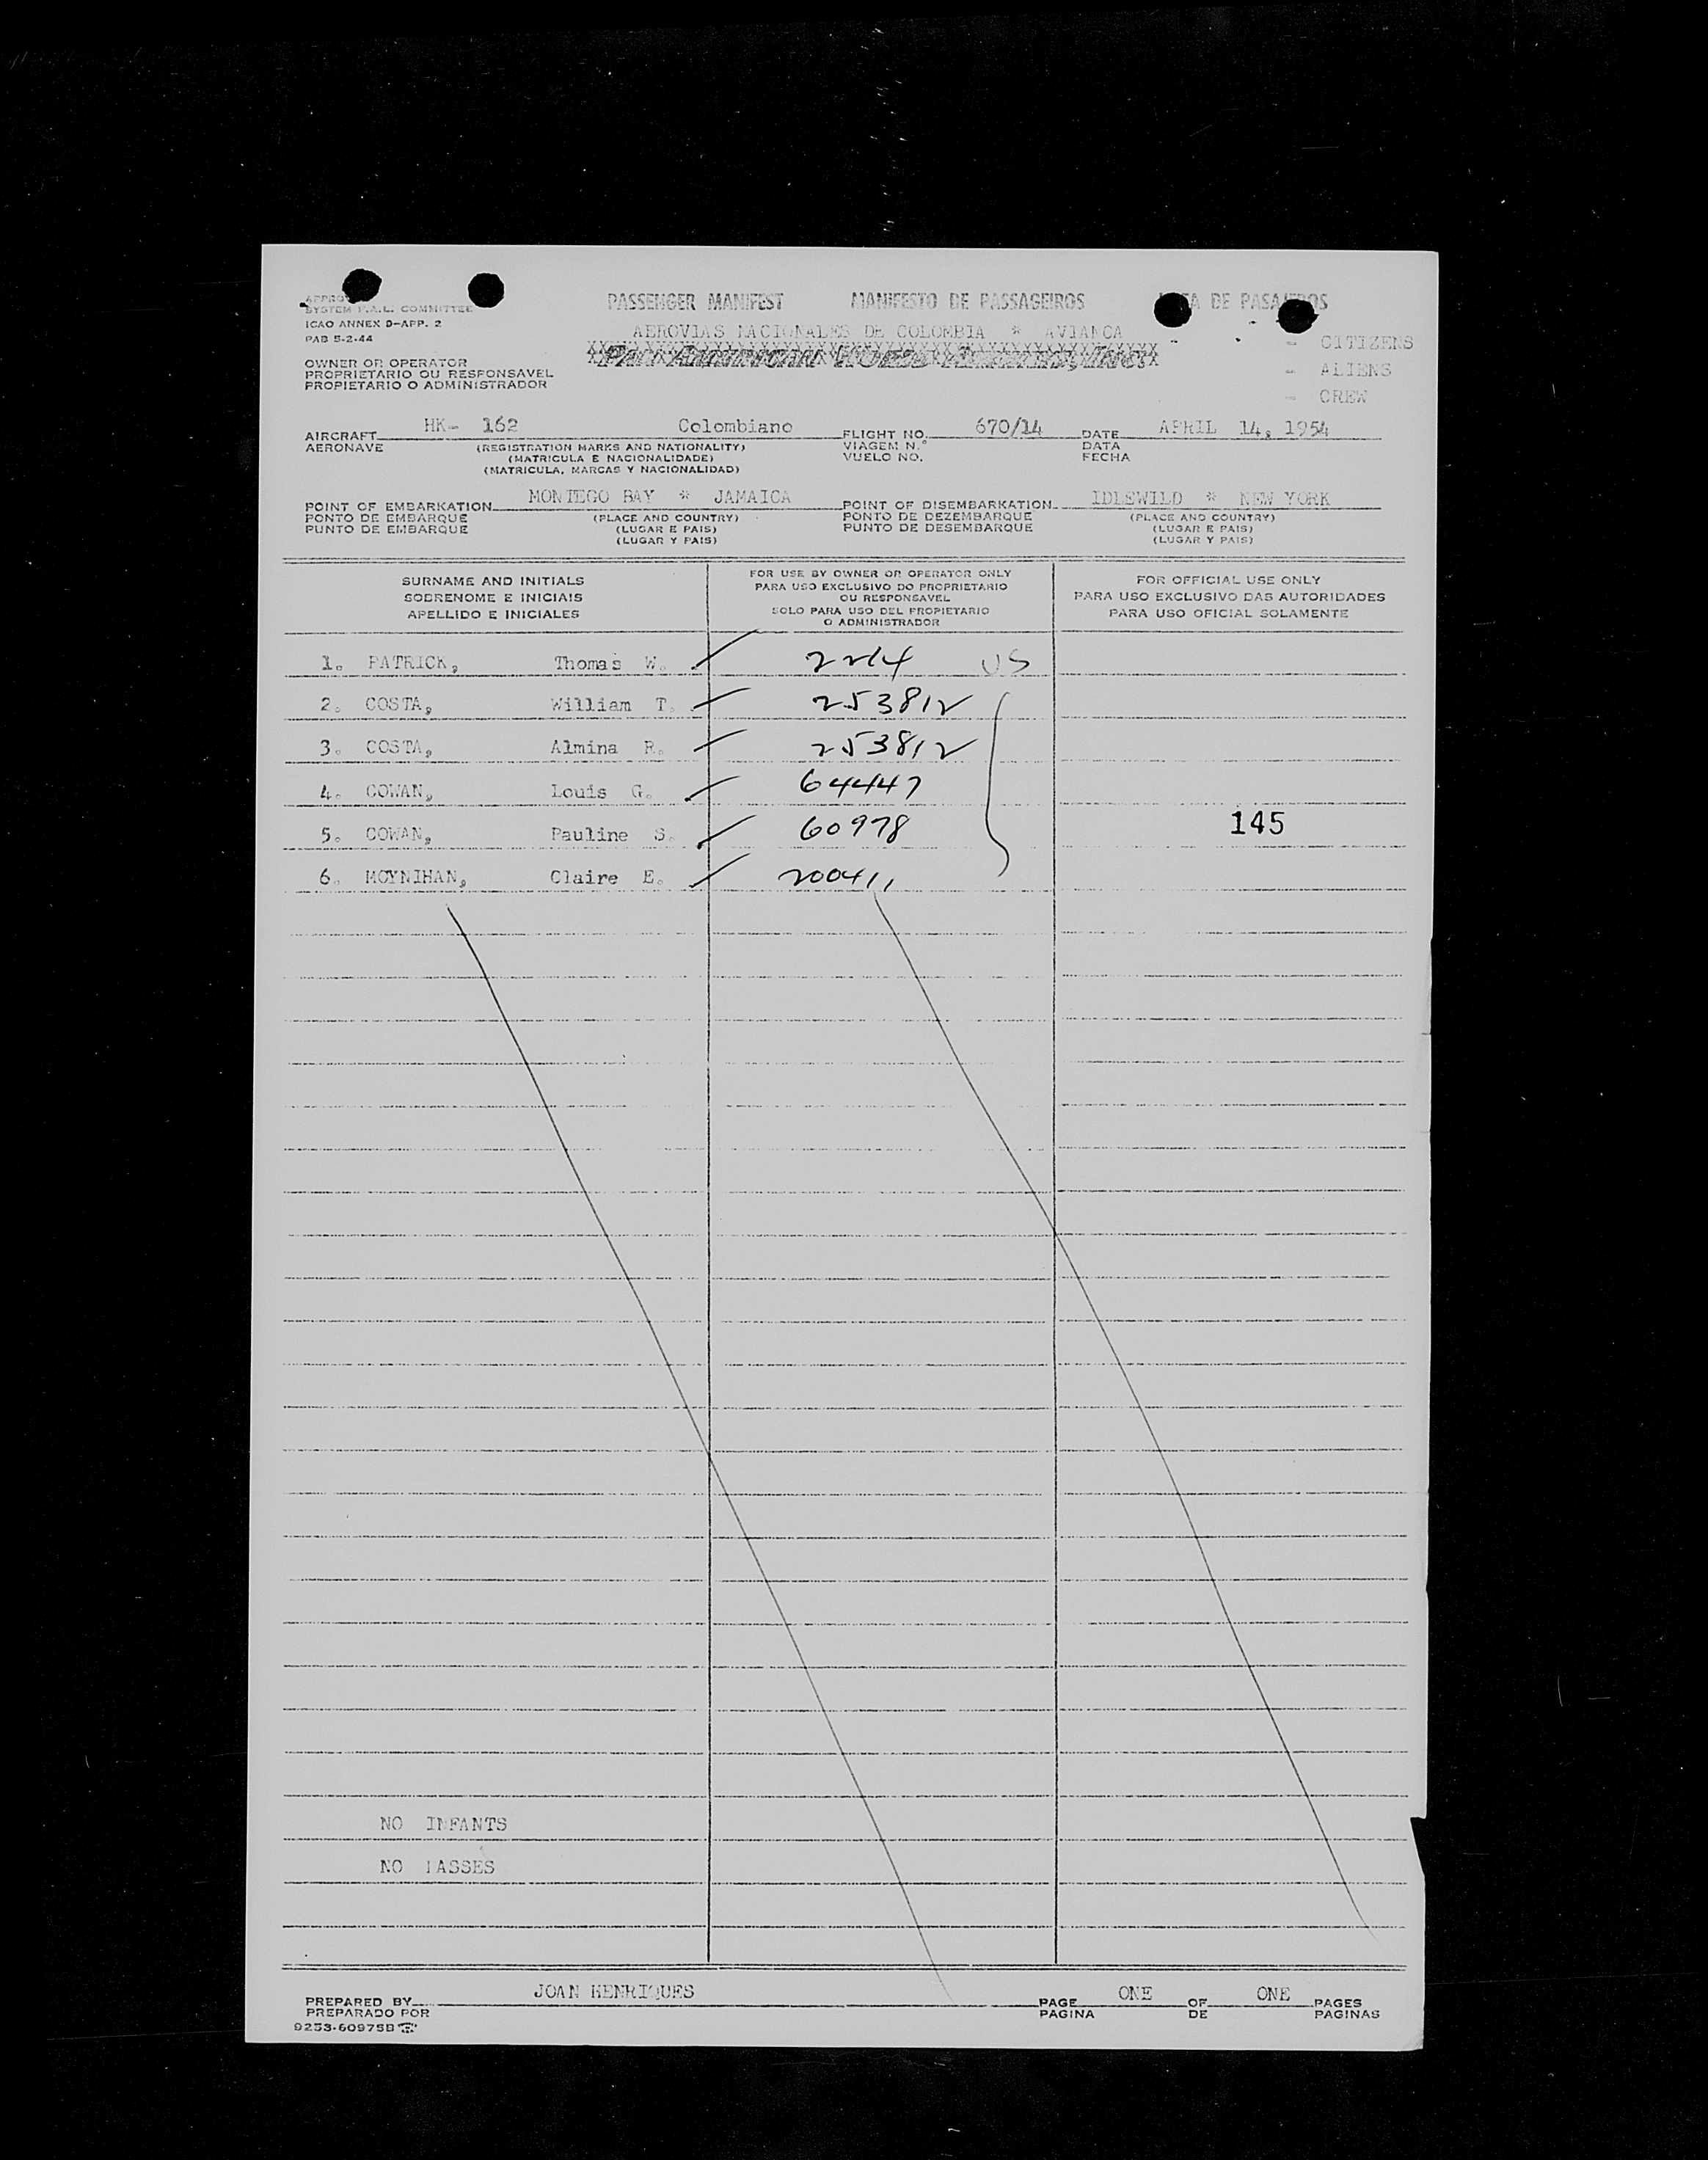 PASSENGER MANIFEST MANIFESTO DE PASSAGEIROS DE PASAJEROS
SYSTEM COMMITTEE
ICAO ANNEX 9-APP. 2
PAB 5-2-44
AEROVIAS NACIONALES DE COLOMBIA * AVIANCA
PAN AMERICAN WORLD AIRWAYS, INC.
- CITIZENS
- ALIENS
- CREW
OWNER OR OPERATOR
PROPRIETARIO OU RESPONSAVEL
PROPIETARIO O ADMINISTRADOR
AIRCRAFT HK- 162 Colombiano FLIGHT NO. 670/14 DATE APRIL 14, 1954
AERONAVE (REGISTRATION MARKS AND NATIONALITY) VIAGEM N.º DATA
(MATRICULA E NACIONALIDADE) VUELO NO. FECHA
(MATRICULA, MARCAS Y NACIONALIDAD)
POINT OF EMBARKATION MONTEGO BAY * JAMAICA POINT OF DISEMBARKATION IDLEWILD * NEW YORK
PONTO DE EMBARQUE (PLACE AND COUNTRY) PONTO DE DEZEMBARQUE (PLACE AND COUNTRY)
PUNTO DE EMBARQUE (LUGAR E PAIS) PUNTO DE DESEMBARQUE (LUGAR E PAIS)
(LUGAR Y PAIS) (LUGAR Y PAIS)
SURNAME AND INITIALS
SOBRENOME E INICIAIS
APELLIDO E INICIALES
FOR USE BY OWNER OR OPERATOR ONLY
PARA USO EXCLUSIVO DO PROPRIETARIO
OU RESPONSAVEL
SOLO PARA USO DEL PROPIETARIO
O ADMINISTRADOR
FOR OFFICIAL USE ONLY
PARA USO EXCLUSIVO DAS AUTORIDADES
PARA USO OFICIAL SOLAMENTE
1. PATRICK, Thomas W. 2214 US
2. COSTA, William T. 253812
3. COSTA, Almina R. 253812
4. COWAN, Louis G. 64447
5. COWAN, Pauline S. 60978 145
6. MOYNIHAN, Claire E. 200411
NO INFANTS
NO PASSES
PREPARED BY JOAN HENRIQUES PAGE ONE OF ONE PAGES
PREPARADO POR PAGINA DE PAGINAS
9253-60975B